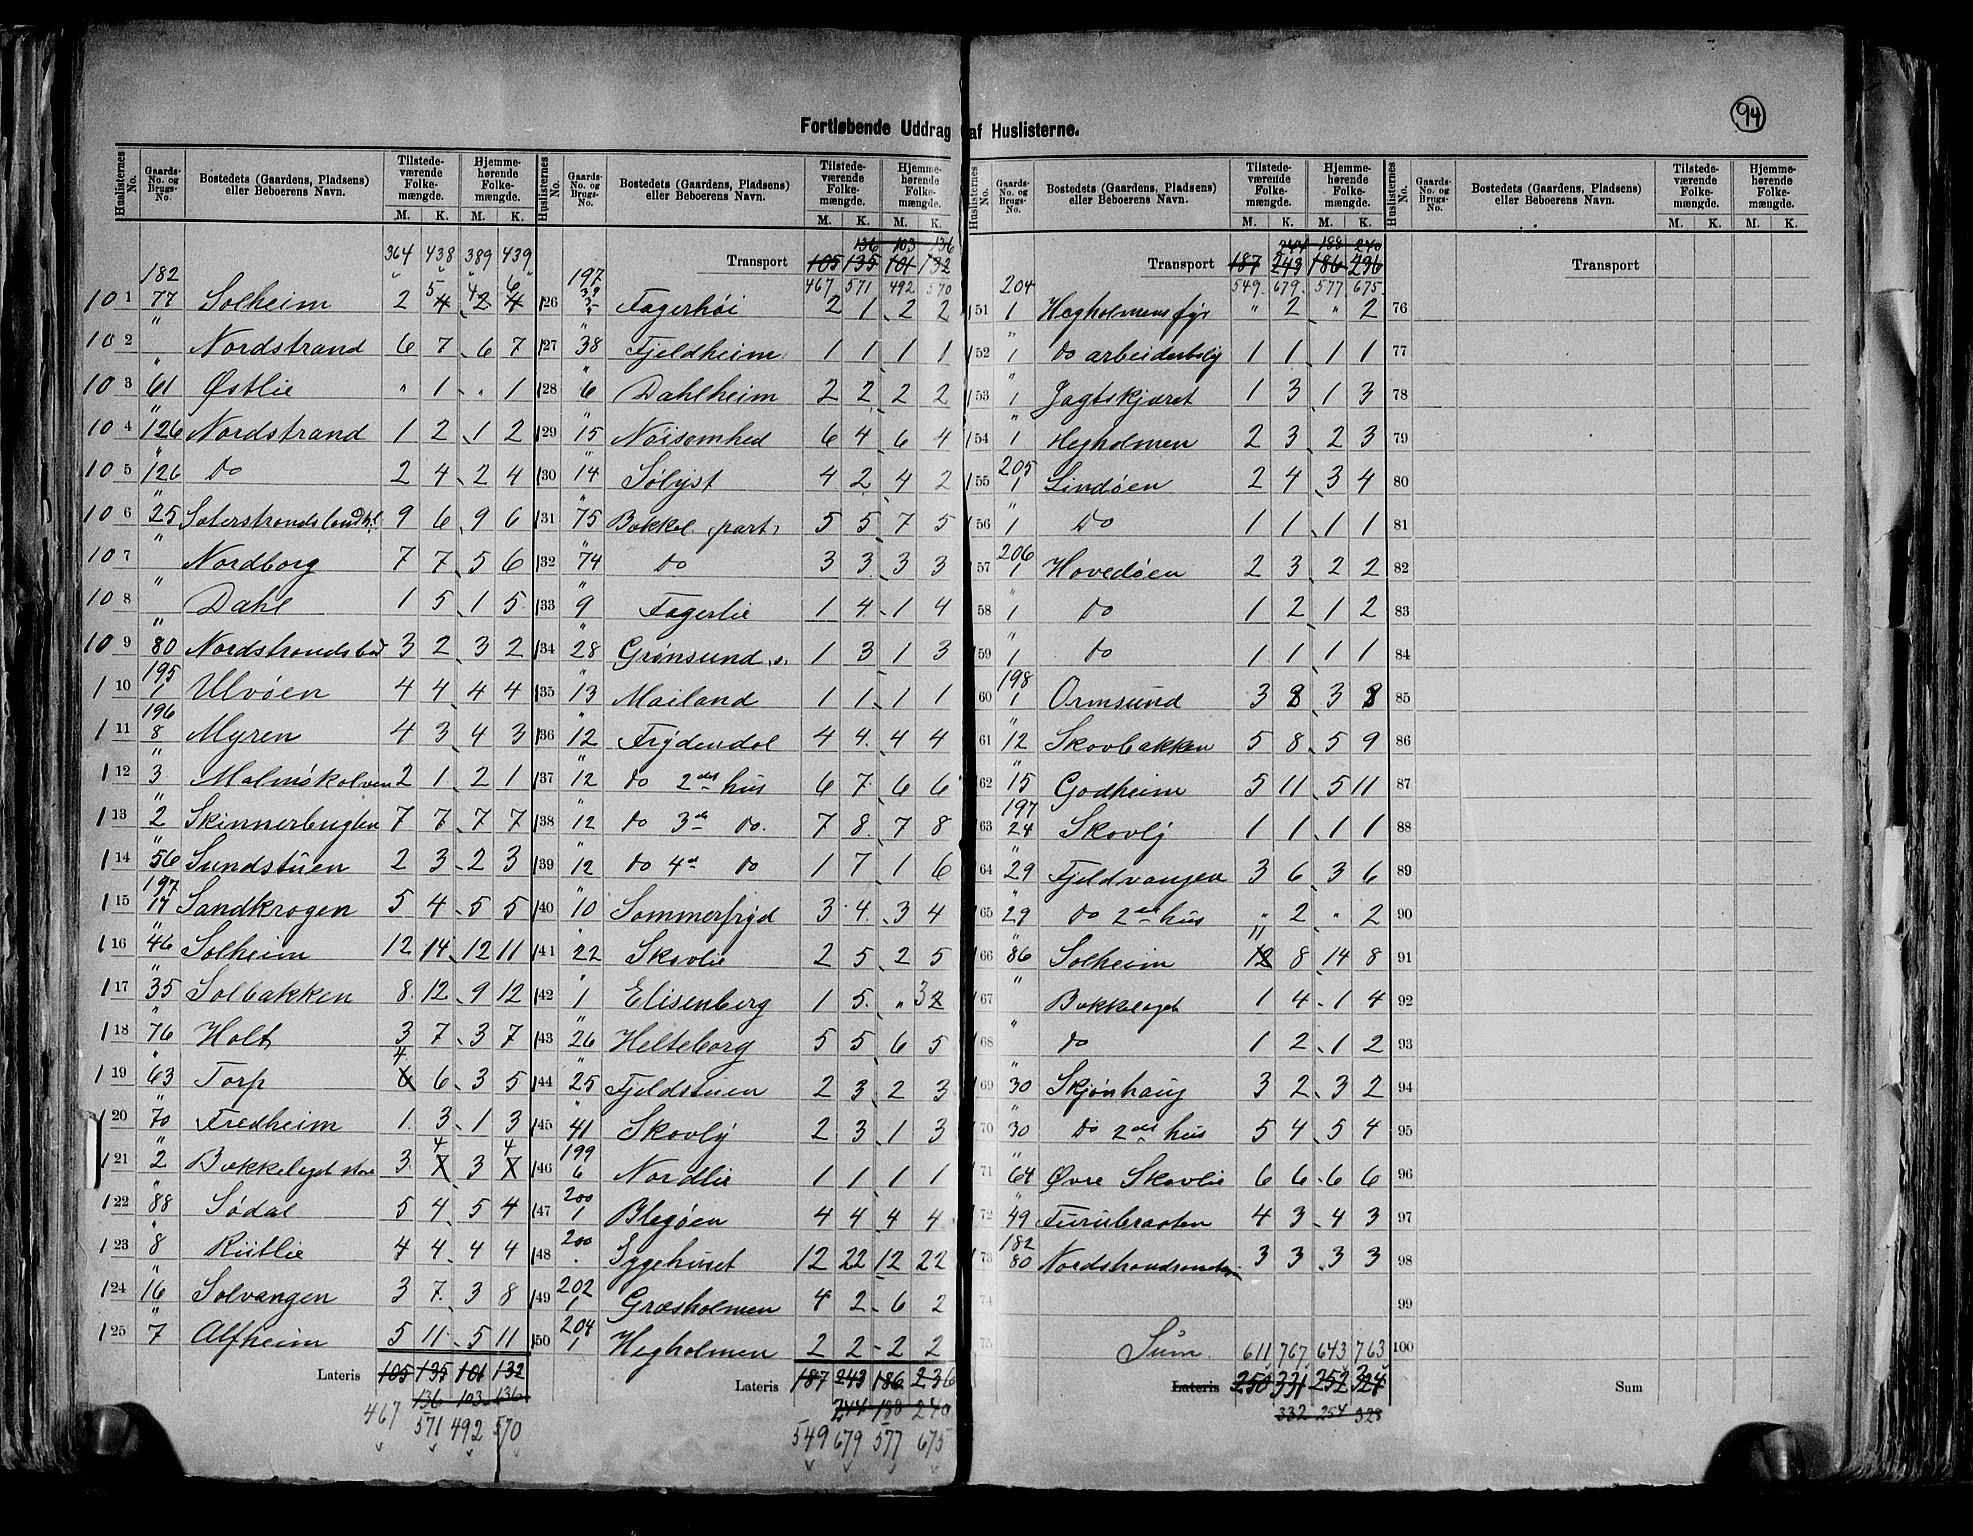 94
Fortløbende Uddrag af Huslisterne.
Huslisternes No. Gaards-No. og Brugs-No. Bostedets (Gaardens, Pladsens) eller Beboerens Navn. Tilstedeværende Folkemængde. M. K. Hjemmehørende Folkemængde. M. K.
364 438 389 439
101 182 77 Solheim 2 5 4 4 2 6 4
102 " Nordstrand 6 7 6 7
103 " 61 Østlie " 1 " 1
104 " 126 Nordstrand 1 2 1 2
105 " 126 Do 2 4 2 4
106 " 25 9 6 9 6
107 " Nordborg 7 7 5 6
108 " Dahl 1 5 1 5
109 " 80 Nordstrandsbad 3 2 3 2
110 195 1 Ulvøen 4 4 4 4
111 196 8 Myren 4 3 4 3
112 " 3 Malmøkalven 2 1 2 1
113 " 2 Skinnerbugten 7 7 7 7
114 " 56 Sundstuen 2 3 2 3
115 197 17 Sandkrogen 5 4 5 5
116 " 46 Solheim 12 14 12 11
117 " 35 Solbakken 8 12 9 12
118 " 76 Holt 3 7 3 7
119 " 63 Torp 4 6 6 3 5
120 " 70 Fredheim 1 3 1 3
121 " 2 Bækkelaget store 3 4 7 3 4 7
122 " 88 Sødal 5 4 5 4
123 " 8 Rütlie 4 4 4 4
124 " 16 Solvangen 3 7 3 8
125 " 7 Alfheim 5 11 5 11
Lateris 105 135 101 132
136 103 136
467 571 492 570
Huslisternes No. Gaards-No. og Brugs-No. Bostedets (Gaardens, Pladsens) eller Beboerens Navn. Tilstedeværende Folkemængde. M. K. Hjemmehørende Folkemængde. M. K.
136 103 136
Transport 105 135 101 132
467 571 492 570
126 197 Fagerhøi 2 1 2 2
127 " 38 Fjeldheim 1 1 1 1
128 " 6 Dahlheim 2 2 2 2
129 " 15 Nøisomhed 6 4 6 4
130 " 14 Sølyst 4 2 4 2
131 " 75 Bækkel. part 5 5 7 5
132 " 74 Do 3 3 3 3
133 " 9 Fagerlie 1 4 1 4
134 " 28 Grønsund 1 3 1 3
135 " 13 Mailand 1 1 1 1
136 " 12 Frydendal 4 4 4 4
137 " 12 do 2det hus 6 7 6 6
138 " 12 do 3de do. 7 8 7 8
139 " 12 do 4de do 1 7 1 6
140 " 10 Sommerfryd 3 4 3 4
141 " 22 Skovlie 2 5 2 5
142 " 1 Elisenberg 1 5 " 3 2
143 " 26 Helteborg 5 5 6 5
144 " 25 Fjeldstuen 2 3 2 3
145 " 41 Skovly 2 3 1 3
146 199 6 Nordlie 1 1 1 1
147 200 1 Blegøen 4 4 4 4
148 200 Sygehuset 12 22 12 22
149 202 1 Græsholmen 4 2 6 2
150 204 1 Hegholmen 2 2 2 2
Lateris 187 243 186 236
244 188 240
549 679 577 675
Huslisternes No. Gaards-No. og Brugs-No. Bostedets (Gaardens, Pladsens) eller Beboerens Navn. Tilstedeværende Folkemængde. M. K. Hjemmehørende Folkemængde. M. K.
244 188 240
Transport 187 243 186 236
549 679 577 675
151 204 1 Hegholmens fyr " 2 " 2
152 " 1 do arbeiderbolig 1 1 1 1
153 " 1 Jagtskjæret 1 3 1 3
154 " 1 Hegholmen 2 3 2 3
155 205 1 Lindøen 2 4 3 4
156 " 1 Do 1 1 1 1
157 206 1 Hovedøen 2 3 2 2
158 " 1 do 1 2 1 2
159 " 1 do 1 1 1 1
160 198 1 Ormsund 3 8 3 8
161 " 12 Skovbakken 5 8 5 9
162 " 15 Godheim 5 11 5 11
163 197 24 Skovly 1 1 1 1
164 " 29 Fjeldvangen 3 6 3 6
165 " 29 do 2det hus " 2 " 2
166 " 86 Solheim 11 12 8 14 8
167 " Bækkelaget 1 4 1 4
168 " do 1 2 1 2
169 " 30 Skjønhaug 3 2 3 2
170 " 30 Do 2det hus 5 4 5 4
171 " 64 Øvre Skovlie 6 6 6 6
172 " 49 Furubraaten 4 3 4 3
173 182 80 3 3 3 3
74
75 Sum 611 767 643 763
Lateris 250 331 252 324
332 254 328
Huslisternes No. Gaards-No. og Brugs-No. Bostedets (Gaardens, Pladsens) eller Beboerens Navn. Tilstedeværende Folkemængde. M. K. Hjemmehørende Folkemængde. M. K.
Transport
76
77
78
79
80
81
82
83
84
85
86
87
88
89
90
91
92
93
94
95
96
97
98
99
100
Sum